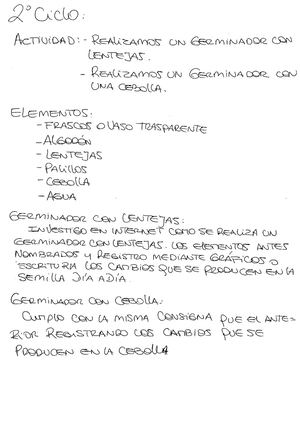 2° Ciclo:
ACTIVIDAD: - REALIZAMOS UN GERMINADOR CON
LENTEJAS.
- REALIZAMOS UN GERMINADOR CON
UNA CEBOLLA.
ELEMENTOS:
- FRASCOS O VASO TRASPARENTE
- ALGODÓN
- LENTEJAS
- PALILLOS
- CEBOLLA
- AGUA
GERMINADOR CON LENTEJAS:
INVESTIGO EN INTERNET COMO SE REALIZA UN
GERMINADOR CON LENTEJAS. LOS ELEMENTOS ANTES
NOMBRADOS Y REGISTRO MEDIANTE GRÁFICOS O
ESCRITURA LOS CAMBIOS QUE SE PRODUCEN EN LA
SEMILLA DÍA A DÍA.
GERMINADOR CON CEBOLLA:
CUMPLO CON LA MISMA CONSIGNA QUE EL ANTE=
RIOR REGISTRANDO LOS CAMBIOS QUE SE
PRODUCEN EN LA CEBOLLA